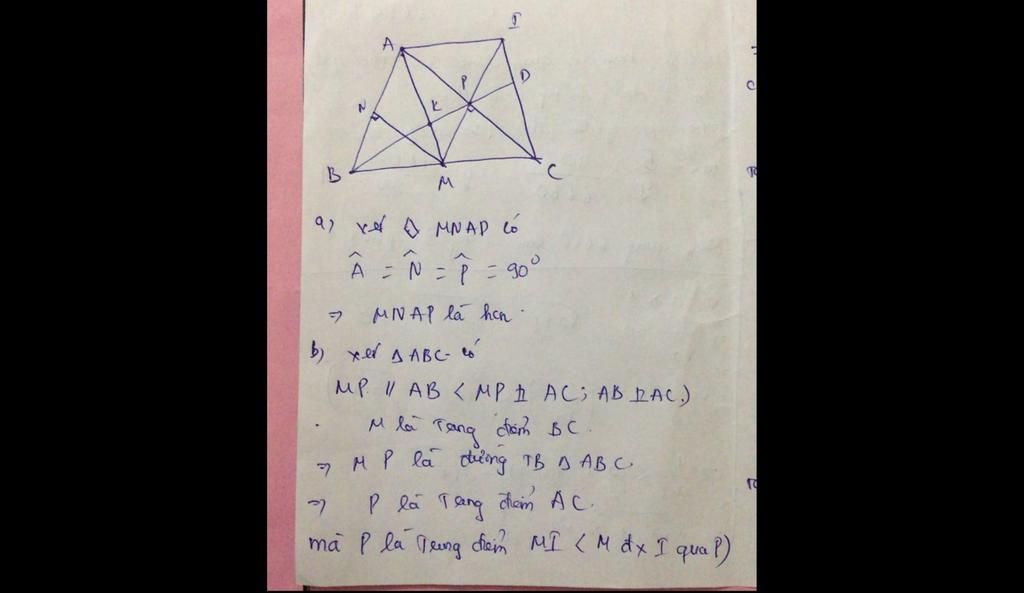 I
A
D
P
N
K
B
M
C
a) xét ◇ MNAP có
Â = N̂ = P̂ = 90⁰
⇒ MNAP là hcn.
b) xét Δ ABC có
MP // AB < MP ⊥ AC; AB ⊥ AC)
M là Trung điểm BC.
⇒ MP là đường TB Δ ABC
⇒ P là Trung điểm AC.
mà P là Trung điểm MI < M đx I qua P)